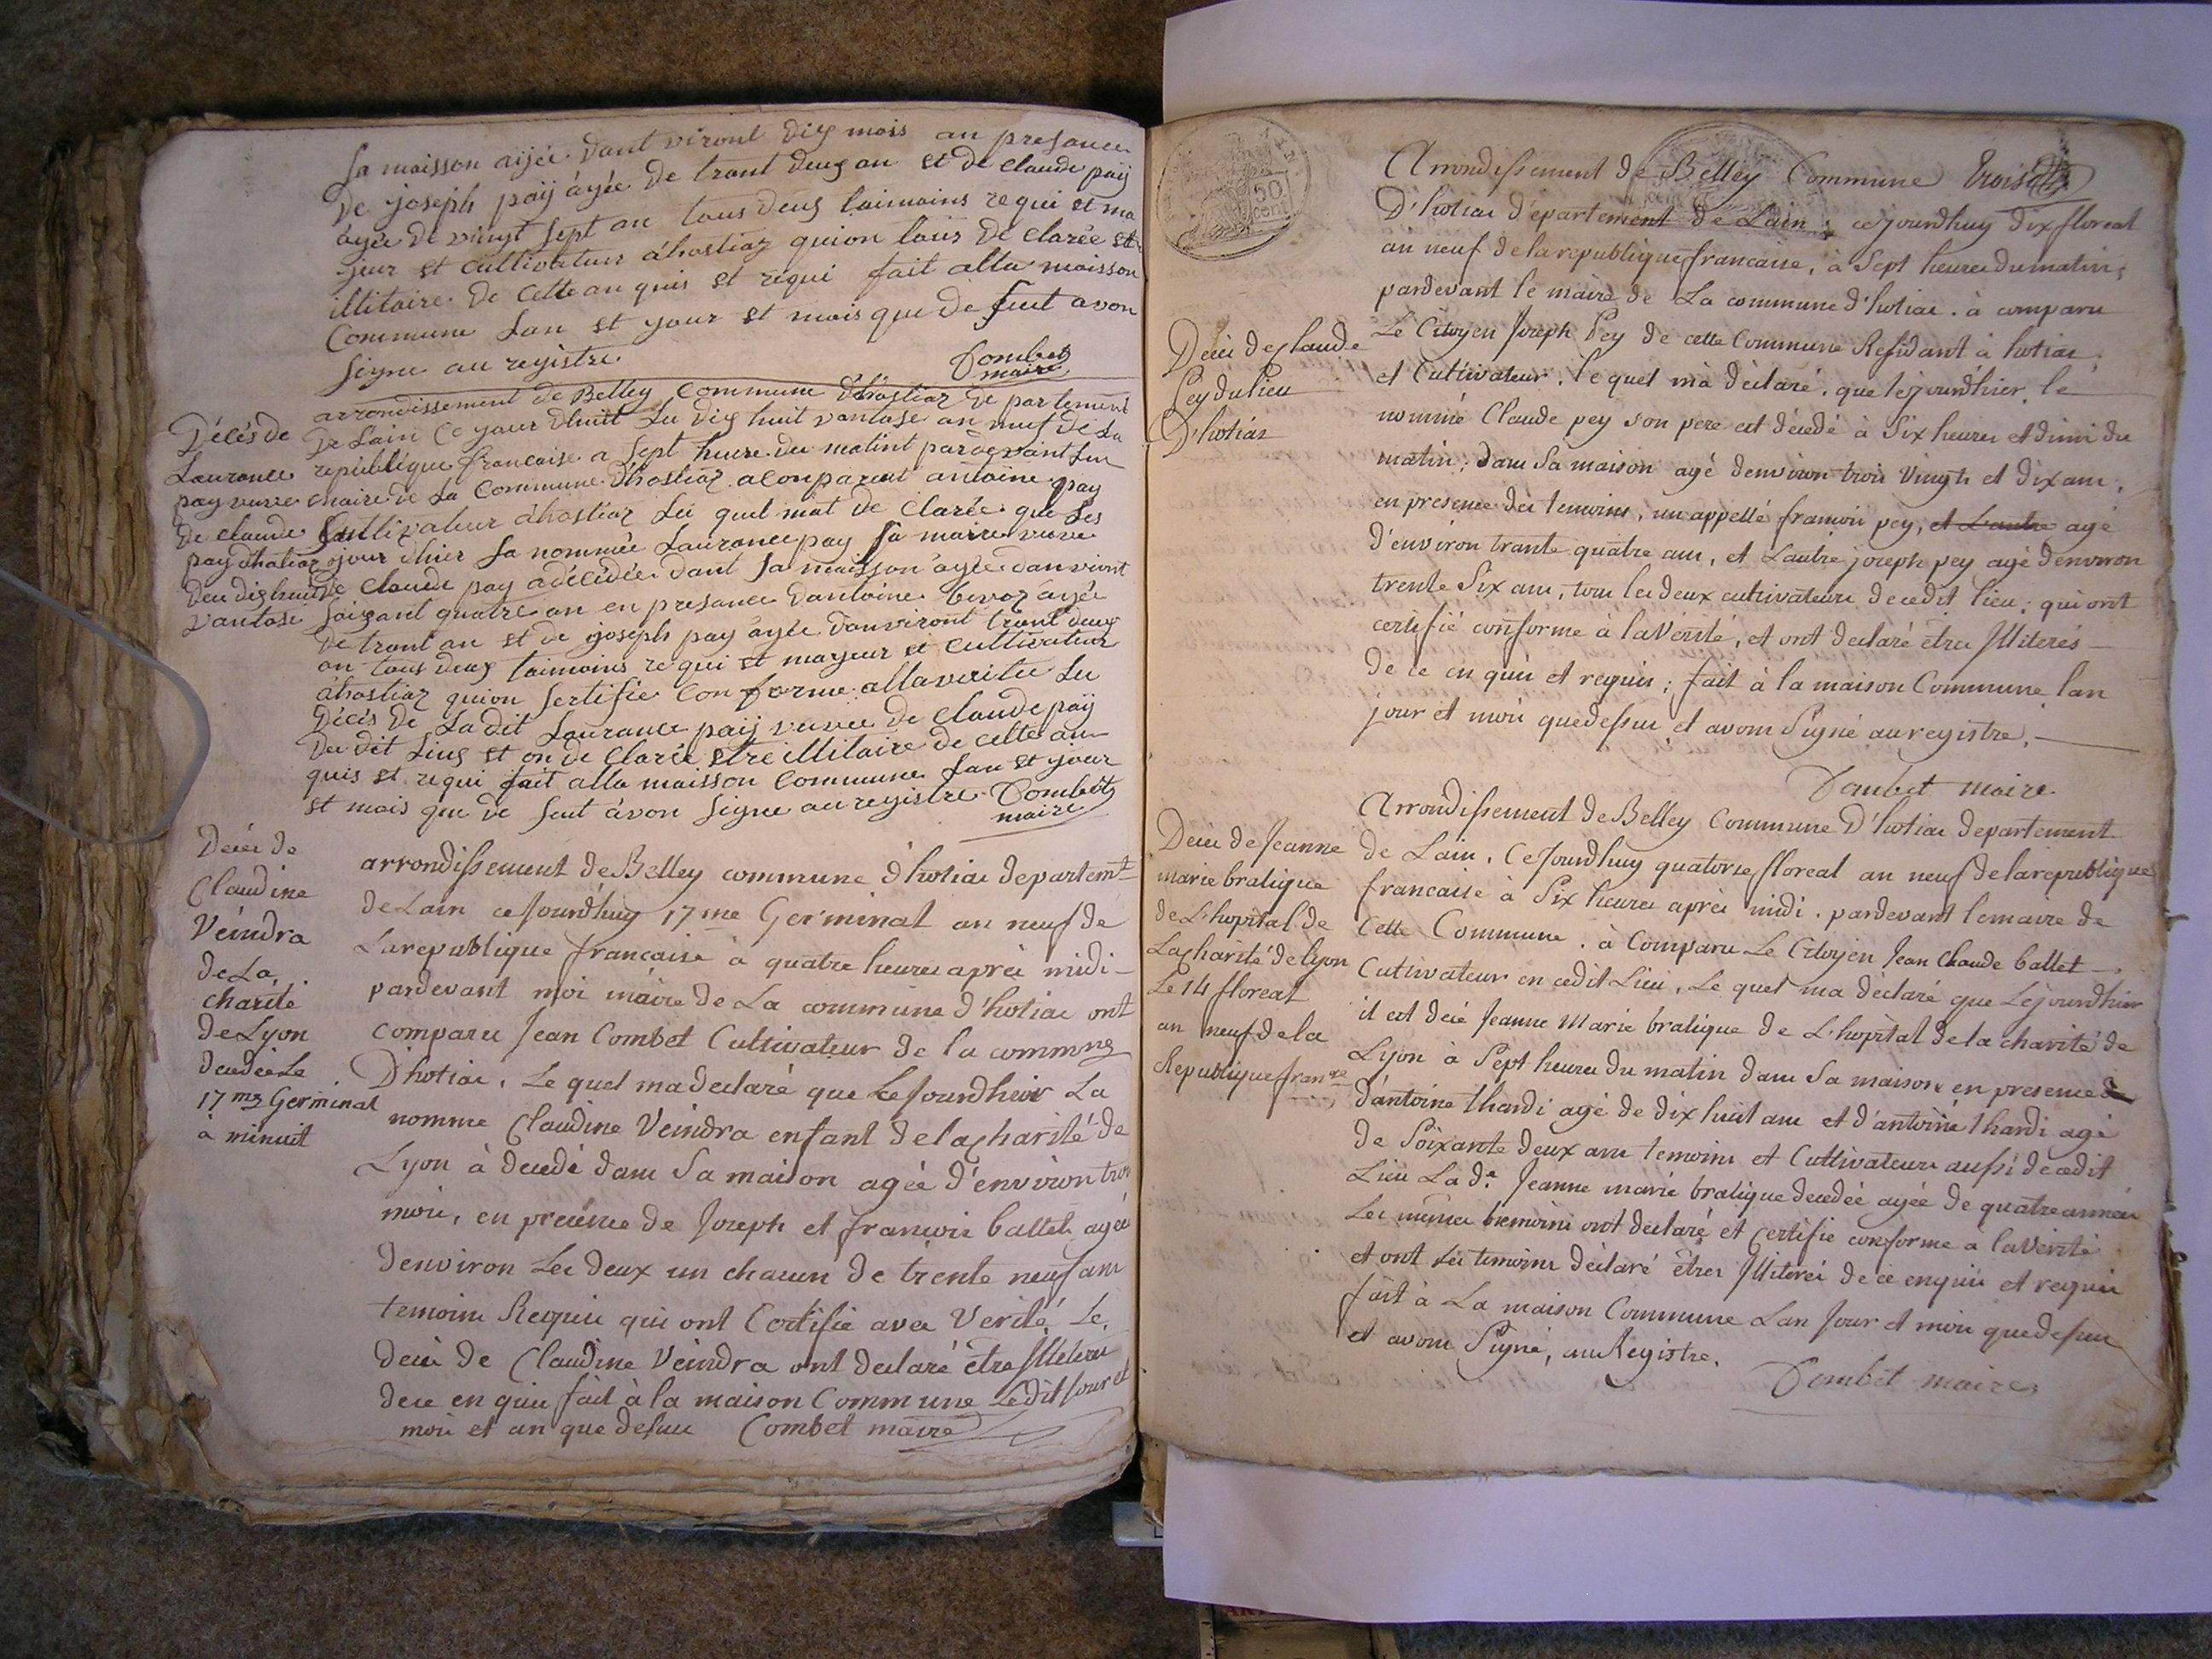 sa maisson aÿée dant viront dix mois an presance
de joseph paÿ âyée de trant deux an et de claude paÿ
âyée de vingt sept an tous deux taimoins requi et ma
jeur et cultivateur âhostiaz quion tous de clarée etre
illitaire de cette an quis et requi fait alla maisson
Commune lan et jour et mois que de sut avon
signe au registre
Combet
maire
Décés de
Laurance
pay veuve
de claude
pay dhatiaz
deu dix huit
vantose
arrondissement de Belley Commune dhostiaz de partement
de Lain Ce jour dhuit du dix huit vantose an neuf de La
republique francaise a sept heure du matint pardevant Lui
maire de La Commune dhostiaz aconparut antoine pay
Cultivateur âhostiaz Lei quel mat de clarée que Les
jour dhier sa nommée Laurance pay sa maire veuve
de Claude pay adécédée dant sa maisson âyée danviront
soixant quatre an en presance dantoine bevoz âyée
de trant an et de joseph paÿ âyée danviront trant deux
an tous deux taimoins requi et mayeur et cultivateur
âhostiaz quion sertifie Con forme alla veritée Lu
décés de La dit Laurance paÿ veuve de claude paÿ
du dit Lieux et on de Clarée etre illitaire de cette an
quis et requi fait alla maisson Commune Lan et jour
et mois que de sut âvon signe au registre Combet
maire
Deces de
Claudine
Veindra
de La
charité
de Lyon
decedée Le
17me Germinal
à minuit
arrondissement de Belley commune d'hotiac departemt
de Lain ce Jourd'huy 17me Germinal an neuf de
La republique francaise à quatre heures après midi
pardevant moi maire de La commune d'hotiac ont
comparu Jean Combet Cultivateur de la commune
D'hotiac, Le quel ma declaré que Le Jourdheir La
nomme Claudine Veindra enfant de la charité de
Lyon à decedé dans Sa maison agée d'environ trois
mois, en presence de Joseph et francois ballet agés
denviron Les deux un chacun de trente neuf ans
temoins Requis qui ont Certifié avec Verité Le
deces de Claudine Veindra ont declaré être Illeterés
de ce en quis fait à la maison Commune Ledit Jour et
mois et an que desus Combet maire
50
cent
Arrondissement de Belley Commune trois
D'hotiac departement de Lain; cejourdhuy dix floreal
an neuf de la republique francaise, à Sept heures du matin;
pardevant le maire de La commune d'hotiac. à comparu
Le Citoyen Joseph Pey de cette Commune Residant à hotiac
et Cultivateur. le quel mà déclaré. que lejourdhier le
nommé Claude pey son pere est décédé à Six heures et dimi du
matin; dans Sa maison agé denviron trois Vingts et dix ans,
en presence des temoins, un appellé francois pey, et Lautre agé
d'environ trante quatre ans, et Lautre joseph pey agé denvoron
trente Six ans, tous les deux cutivateurs de cedit lieu; qui ont
certifié conforme à la Verité, et ont declaré etres Illiterés
de ce en quis et requis; fait à la maison Commune lan
jour et mois quedessus et avons Signé au registre.
Combet maire
Deces de Claude
Pey du lieu
D'hotias
Arrondissement de Belley Commune D'hotiac departement
de Lain, Ce Jourdhuy quatorse floreal an neuf de la republique
francaise à Six heures après midi. pardevant lemaire de
Cette Commune. à Comparu Le Citoyen Jean Claude ballet
Cutivateur en cedit Lieu, Le quel ma déclaré que Lejourdhier
il est décé Jeanne Marie bralique de L'hopital de la charité de
Lyon à Sept heures du matin dans Sa maison en presence de
d'antoine thardi agé de dix huit ans et d'antoine thardi agé
de Soixante deux ans temoins et Cultivateurs aussi de cedit
Lieu La de Jeanne marie bralique decedée agée de quatre années
Les mêmes temoins ont declaré et Certifie conforme a la Verité
et ont Les temoins déclaré êtres Illiterés de ce enquis et requis
fait à La maison Commune Lan Jour et mois quedesus
et avons Signé, au Registre.
Combet maire
Deces de Jeanne
marie bralique
de L'hopital de
La charité de lyon
Le 14 floreal
an neuf de la
Republique franse